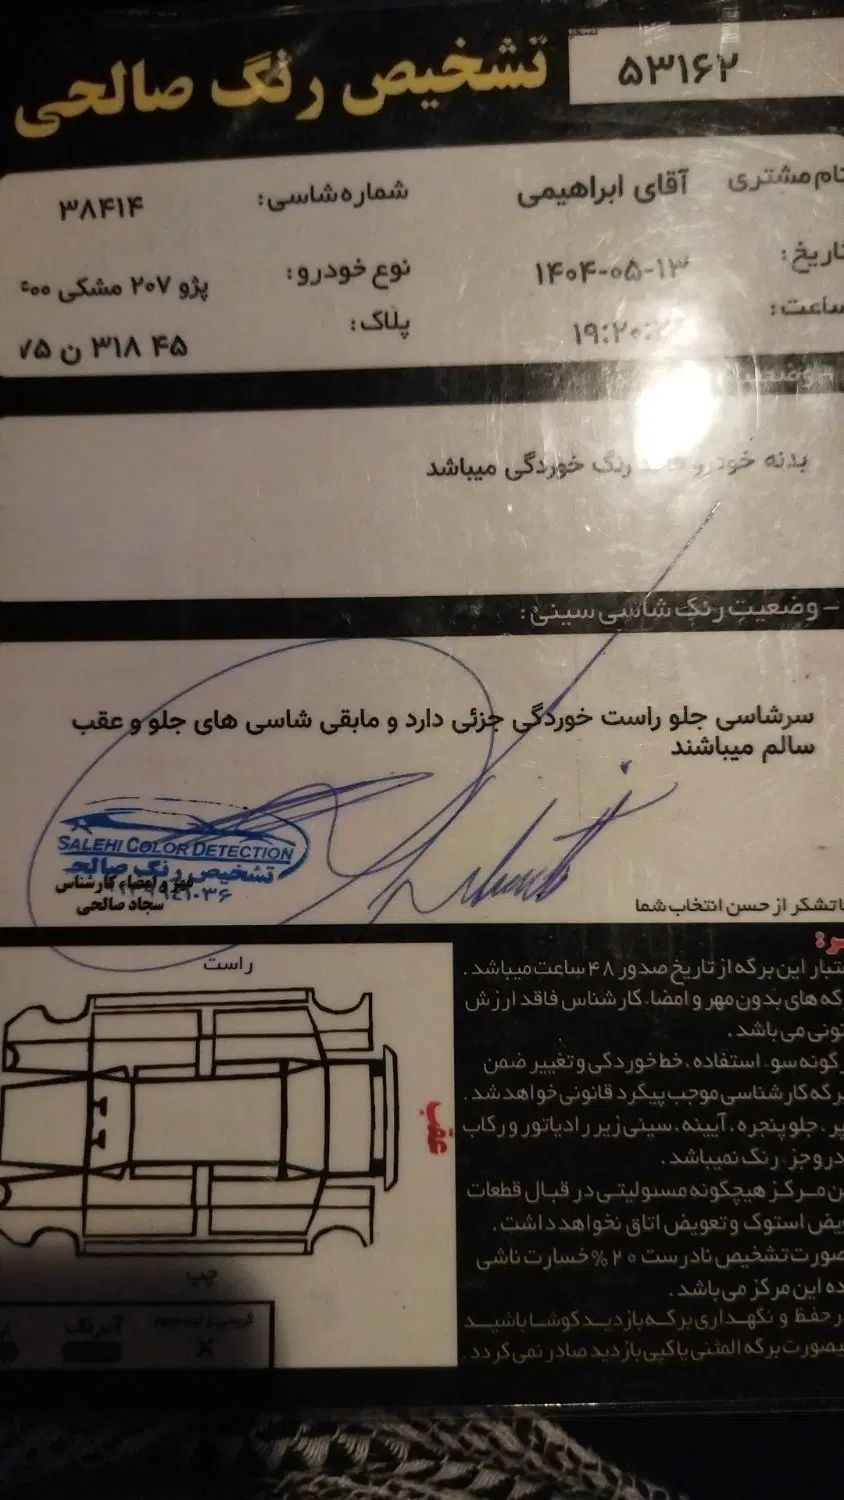 تشخیص رنگ صالحی
۵۳۱۶۲
نام مشتری آقای ابراهیمی
شماره شاسی: ۳۸۴۱۴
تاریخ: ۱۴۰۴-۰۵-۱۳
نوع خودرو: پژو ۲۰۷ مشکی
ساعت: ۱۹:۲۰:
پلاک: ۴۵ ۳۱۸ ن ۷۵
بدنه خودرو رنگ خوردگی میباشد
- وضعیت رنگ شاسی سینی:
سرشاسی جلو راست خوردگی جزئی دارد و مابقی شاسی های جلو و عقب
سالم میباشند
SALEHI COLOR DETECTION
تشخیص رنگ صالحی
مهر و امضاء کارشناس
سجاد صالحی
باتشکر از حسن انتخاب شما
راست
عقب
چپ
اعتبار این برگه از تاریخ صدور ۴۸ ساعت میباشد.
برگه های بدون مهر و امضاء کارشناس فاقد ارزش
قانونی می باشد.
هرگونه سوء استفاده، خط خوردگی و تغییر ضمن
برگه کارشناسی موجب پیگرد قانونی خواهد شد.
سپر، جلو پنجره، آیینه، سینی زیر رادیاتور و رکاب
درو جزء رنگ نمیباشد.
این مرکز هیچگونه مسئولیتی در قبال قطعات
تعویض استوک و تعویض اتاق نخواهد داشت.
صورت تشخیص نادرست ۲۰% خسارت ناشی
این مرکز می باشد.
در حفظ و نگهداری برگه بازدید کوشا باشید
برگه المثنی یا کپی بازدید صادر نمی گردد.
آبرنگ
X